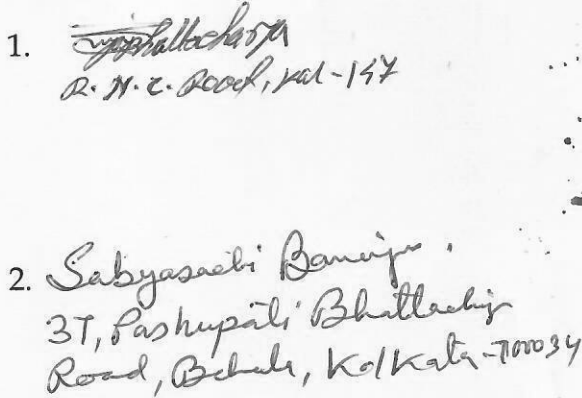 1. Bhattacharya
R. N. C. Road, Kal-147
2. Sabyasachi Banerjee.
37, Pashupati Bhattacharjee
Road, Behala, Kolkata-700034